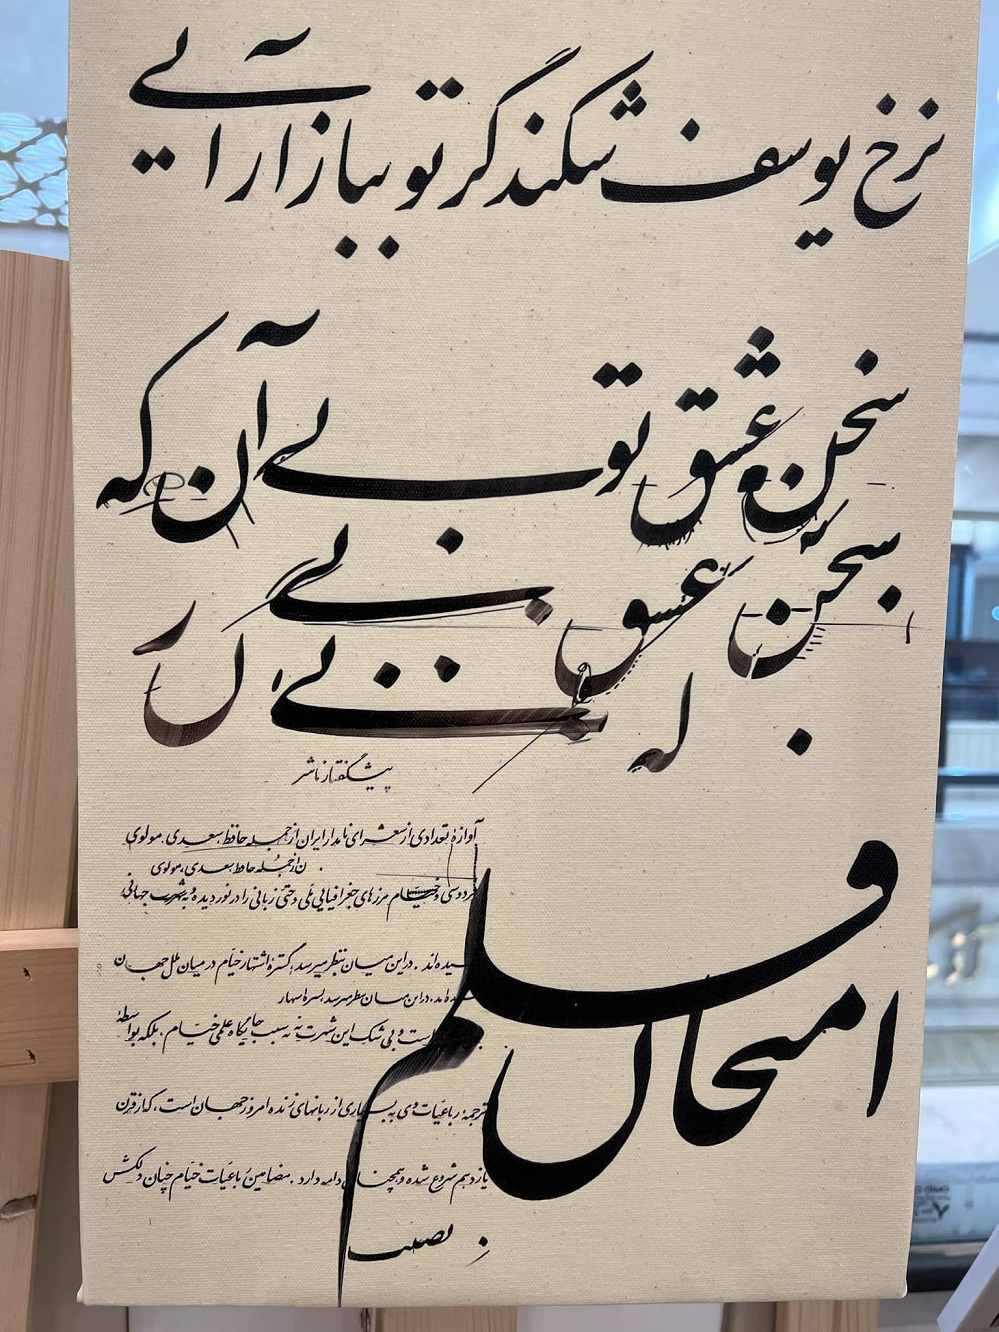 نرخ یوسف شکند گر تو ببازار آیی
سخن عشق تو بی آن که
سخن عشق بی
بی
پیشگفتار ناشر
آوازهٔ تعدادی از شعرای نامدار ایران از جمله حافظ، سعدی، مولوی
از جمله حافظ، سعدی، مولوی
فردوسی و خیام مرزهای جغرافیایی ملی و حتی زبانی را در نوردیده و به شهرت جهانی
رسیده‌اند. در این میان بنظر میرسد، گسترهٔ اشتهار خیام در میان ملل جهان
در این میان بنظر میرسد
است و بی شک این شهرت نه به سبب جایگاه علمی خیام، بلکه بواسطهٔ
ترجمه رباعیات وی به بسیاری از زبانهای زنده امروز جهان است، که از قرن
یازدهم شروع شده و همچنان ادامه دارد. مضامین رباعیات خیام چنان دلکش
امتحان قلم